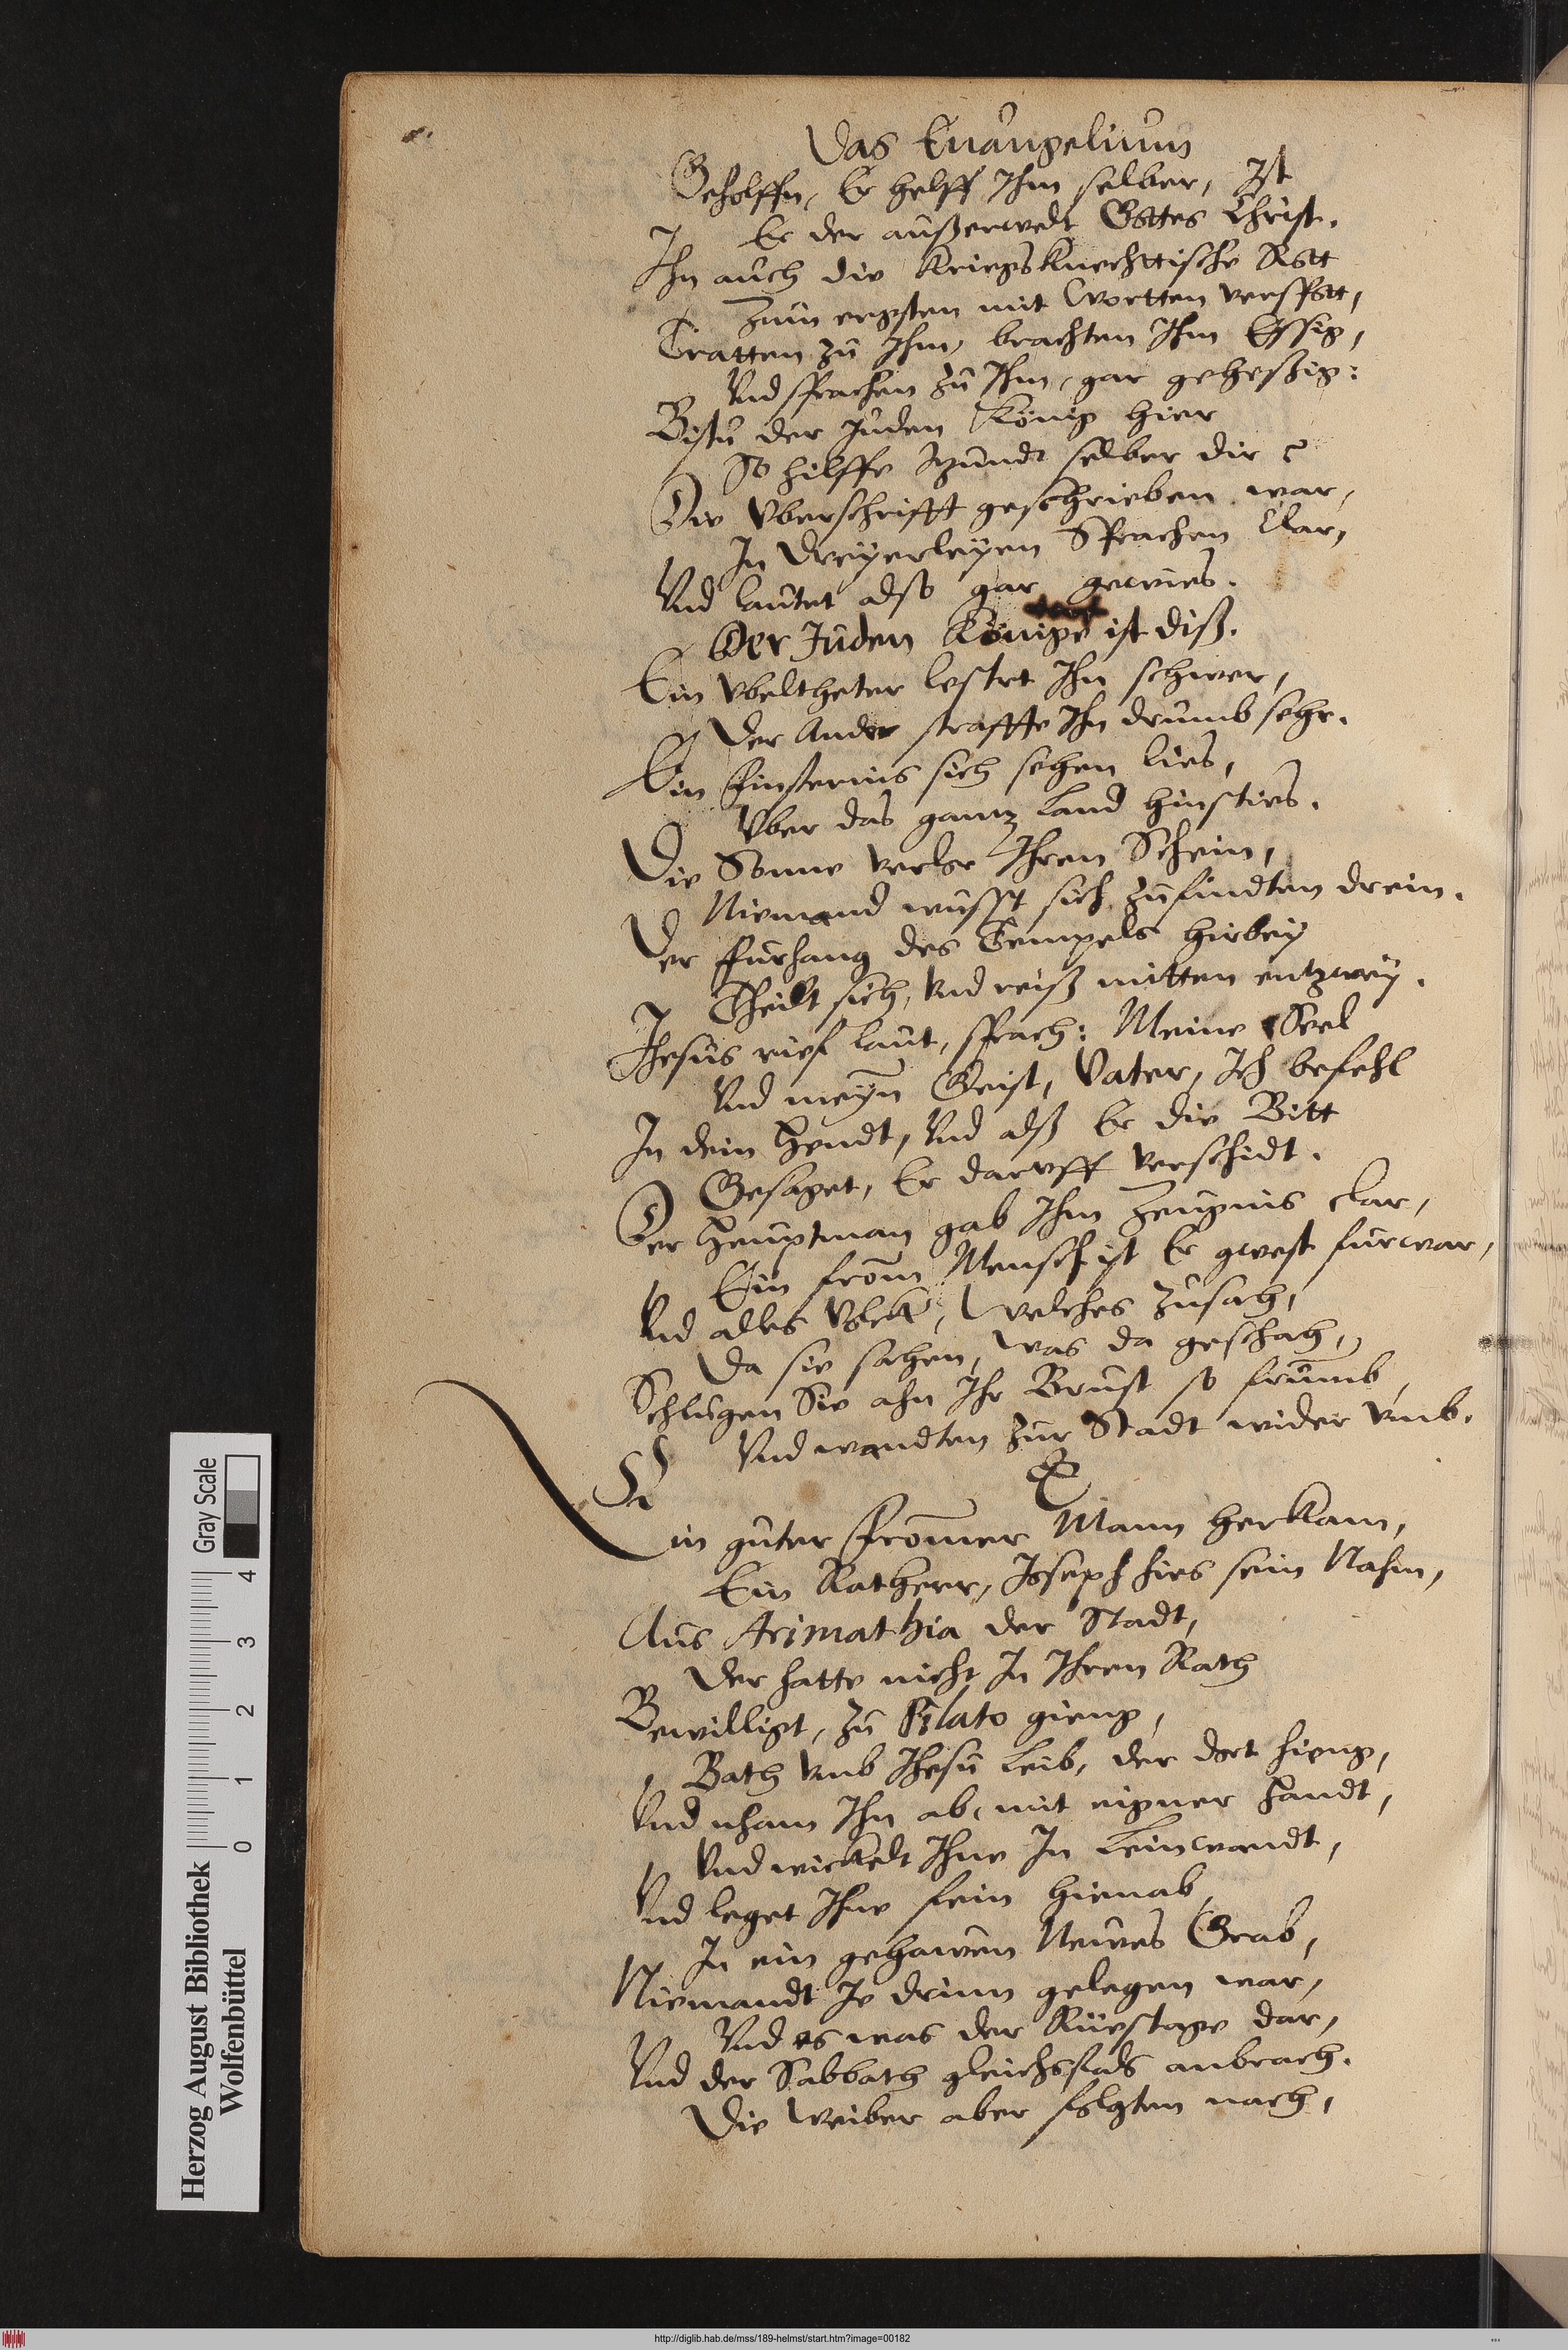 Das Euangelium
Geholffen, Er helff Ihm selber, Ist
Er der außerwelt Gottes Christ.
Ihn auch die Kriegsknechttische Rott
Zum ergsten mit Wortten verspott,
Tratten zu Ihm, brachten Ihm Essig,
Vnd sprachen zu Ihm, gar gehessig:
Bistu der Juden König hier
So hilffe Itzundt selber dir?
Die Vberschrifft geschrieben war,
In dreyerleyen Sprachen klar,
Vnd lautet also gar gewies.
Der Juden Könige ist diß.
Ein Vbeltheter lestrt Ihn schwer,
Der Ander straffte Ihn drumb sehr.
Ein Finsternis sich sehen lies,
Vber das gantz Land hinsties.
Die Sonne verlor Ihren Schein,
Niemand wusst sich zufindten drein.
Der Furhang des Tempels hirbey
Theilt sich, Vnd reiß mitten entzwey.
Ihesus rief laut, sprach: Meine Seel
Vnd meyn Geist, Vater, Ich befehl
In dein Hendt, Vnd alß Er die Bitt
Gesaget, Er darvff verschidt.
Der Heuptman gab Ihm Zeugnis clar,
Ein from Mensch ist Er gwest furwar,
Vnd alles Volck, Welches zusach,
Da sie sahen, was da geschach,
Schlugen Sie ahn Ihr Brust so frumb,
Vnd wandten zur Stadt wider vmb.
Ein guter frommer Mann herkam,
Ein Ratherr, Joseph hies sein Nahm,
Aus Arimathia der Stadt,
Der hatte nicht In Ihren Rath
Bewilligt, zu Pilato gieng,
Bath vmb Ihesu Leib, der dort hieng,
Vnd nham Ihn ab, mit eigner Handt,
Vnd wickelt Ihne In Leinwandt,
Vnd leget Ihne fein hienab,
In ein gehawen Neues Grab,
Niemandt Je drinn gelegen war,
Vnd es was der Rüestage dar,
Vnd der Sabbath gleichsfals anbrach.
Die Weiber aber folgten nach,
Herzog August Bibliothek
Wolfenbüttel
0 1 2 3 4
Gray Scale
http://diglib.hab.de/mss/189-helmst/start.htm?image=00182